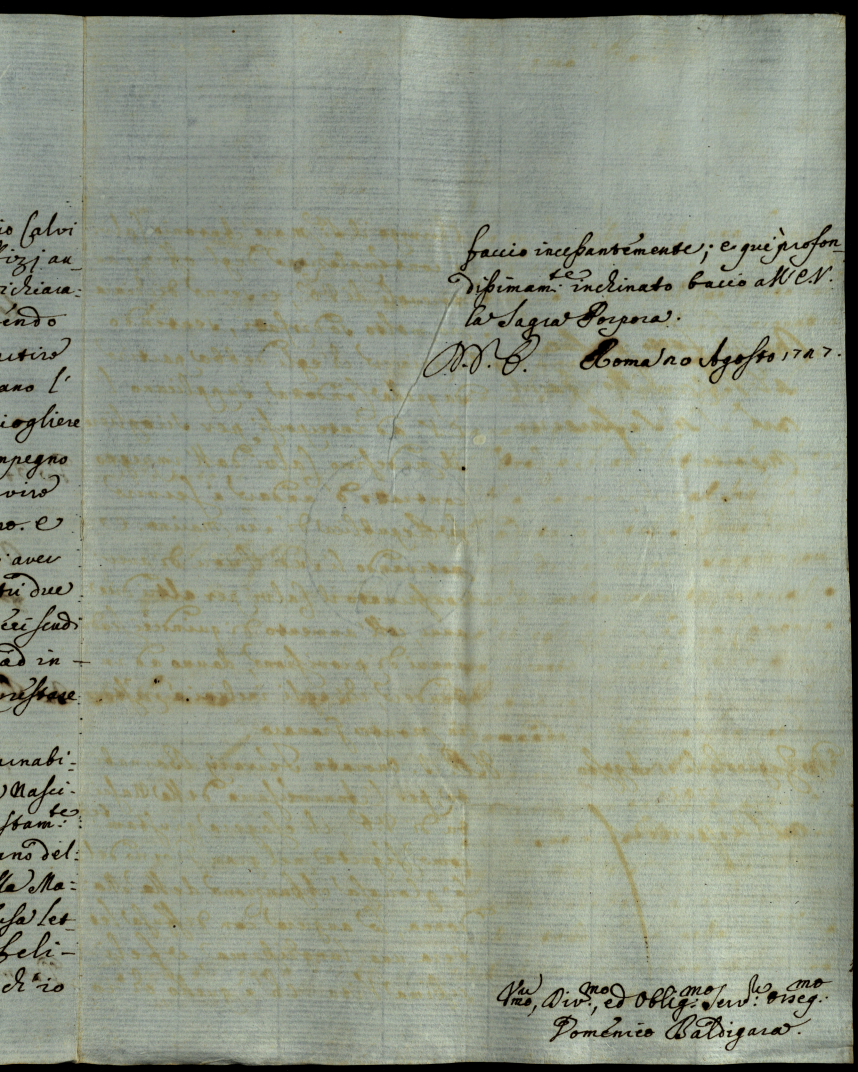 io Calvi
fizj an-
ichiara:
endo
ano l'
iogliere
mpegno
vire
no. e
i aver
tri due
eri scudi
ad in-
prestare
unabi-
Nasci-
stam.te
ano del:
lla Ma:
usa let-
feli-
ch'io
faccio incessantemente; e quì profon-
dissimam.te inchinato bacio all'E.V.
la Sagra Porpora.
D. V. E. Roma 20 Agosto 1727.
Div.mo, ed Oblig.mo Serv.e Osseq.mo
Domenico Baldigara.